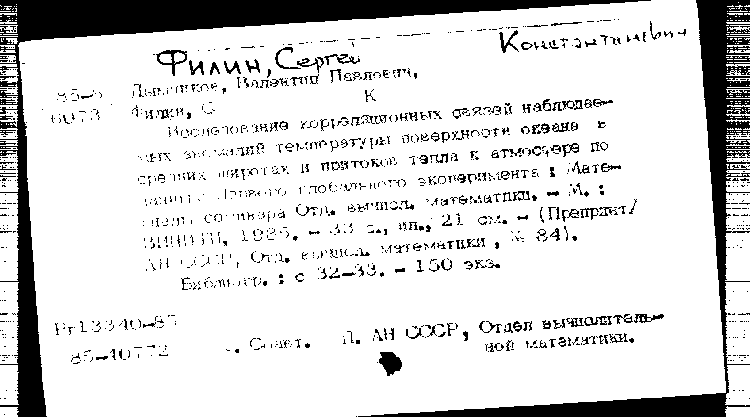 Филин, Сергей Константинович
85-5 Валентин Павлович,
6073 Филин, С К
Исследование корреляционных связей наблюдае-
мых аномалий температуры поверхности океана в
средних широтах и притоков тепла к атмосфере по
Первого глобального эксперимента : Мате-
семинара Отд. вычисл. математики. - М. :
ВИНИТИ, 1985. - 33 с., ил.; 21 см. - (Препринт/
АН СССР, Отд. вычисл. математики, № 84).
Библиогр. : с 32-33. - 150 экз.
Нг13340-85
85-40772 АН СССР, Отдел вычислитель-
ной математики.